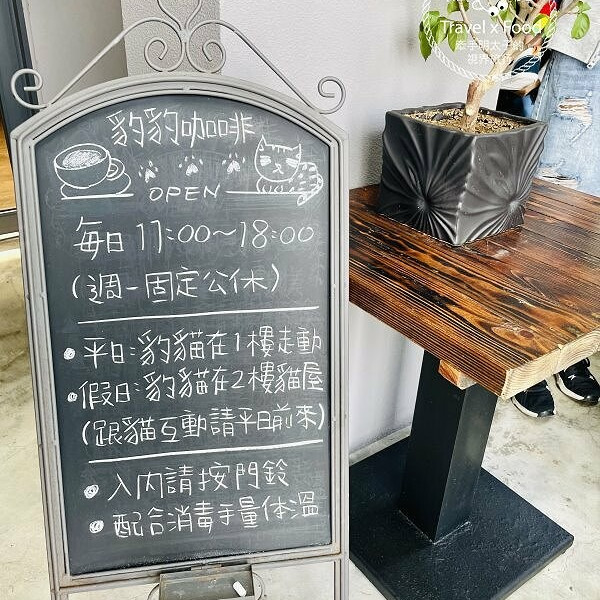 豹豹咖啡
OPEN
每日 11:00~18:00
(週一固定公休)
平日:豹貓在1樓走動
假日:豹貓在2樓貓屋
(跟貓互動請平日前來)
入內請按門鈴
配合消毒手量体温
Travel x Food
牽手明太子的
視界旅行